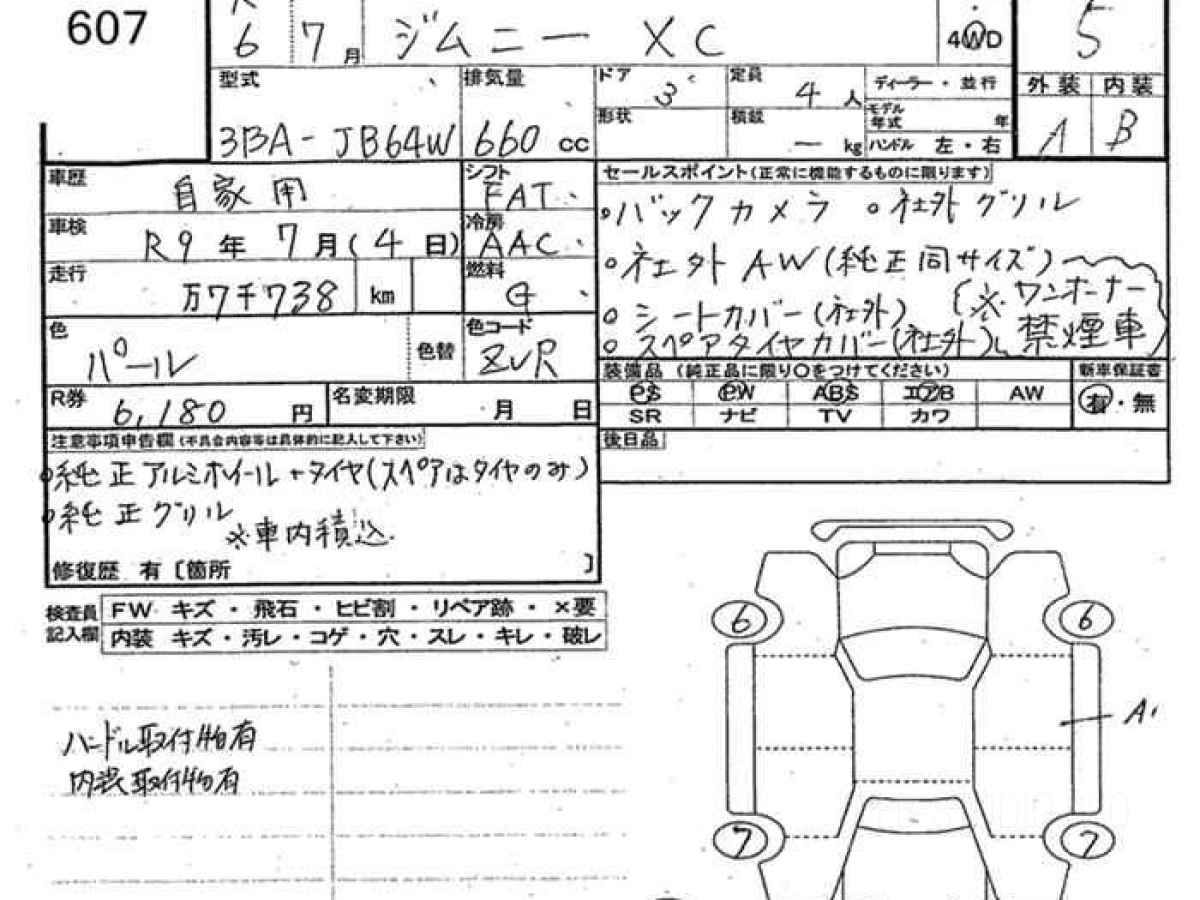 607
6 7月 ジムニー XC 4WD 5
型式 排気量 ドア 3 定員 4 人 ディーラー・並行 外装 内装
3BA-JB64W 660 cc 形状 積載 ー kg モデル年式 年 ハンドル 左・右 A B
車歴 自家用 シフト FAT
車検 R9 年 7 月 (4 日) 冷房 AAC
走行 万7千738 km 燃料 G
色 パール 色替 色コード ZVR
R券 6,180 円 名変期限 月 日
セールスポイント(正常に機能するものに限ります)
○バックカメラ ○社外グリル
○社外AW(純正同サイズ)
○シートカバー(社外) (※ワンオーナー
○スペアタイヤカバー(社外) 禁煙車)
装備品 (純正品に限り○をつけてください) 新車保証書
PS PW ABS エアB AW 有・無
SR ナビ TV カワ
後日品
注意事項申告欄(不具合内容等は具体的に記入して下さい)
○純正アルミホイール+タイヤ(スペアはタイヤのみ)
○純正グリル
※車内積込
修復歴 有〔箇所 〕
検査員記入欄
FW キズ・飛石・ヒビ割・リペア跡・×要
内装 キズ・汚レ・コゲ・穴・スレ・キレ・破レ
ハンドル取付物有
内装取付物有
6 6
A1
7 7